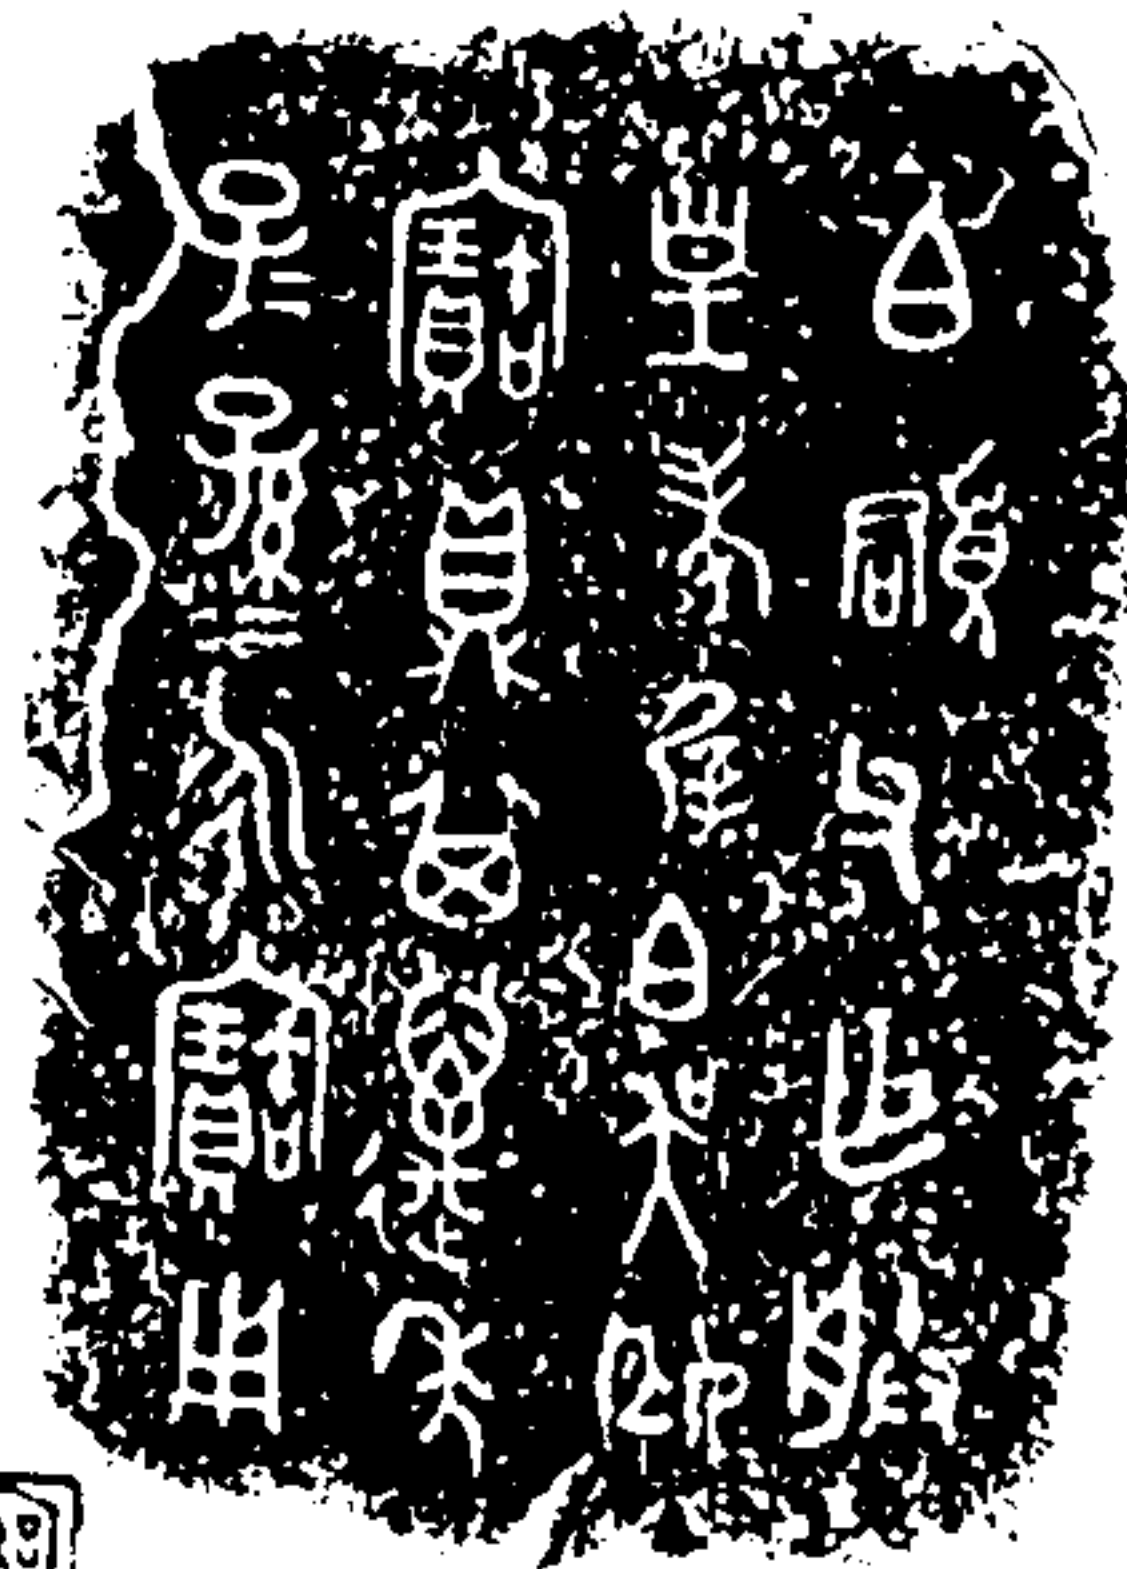 白頵父乍朕
皇考屖白吳姬
寶鼎其萬年
子=孫=永寶用